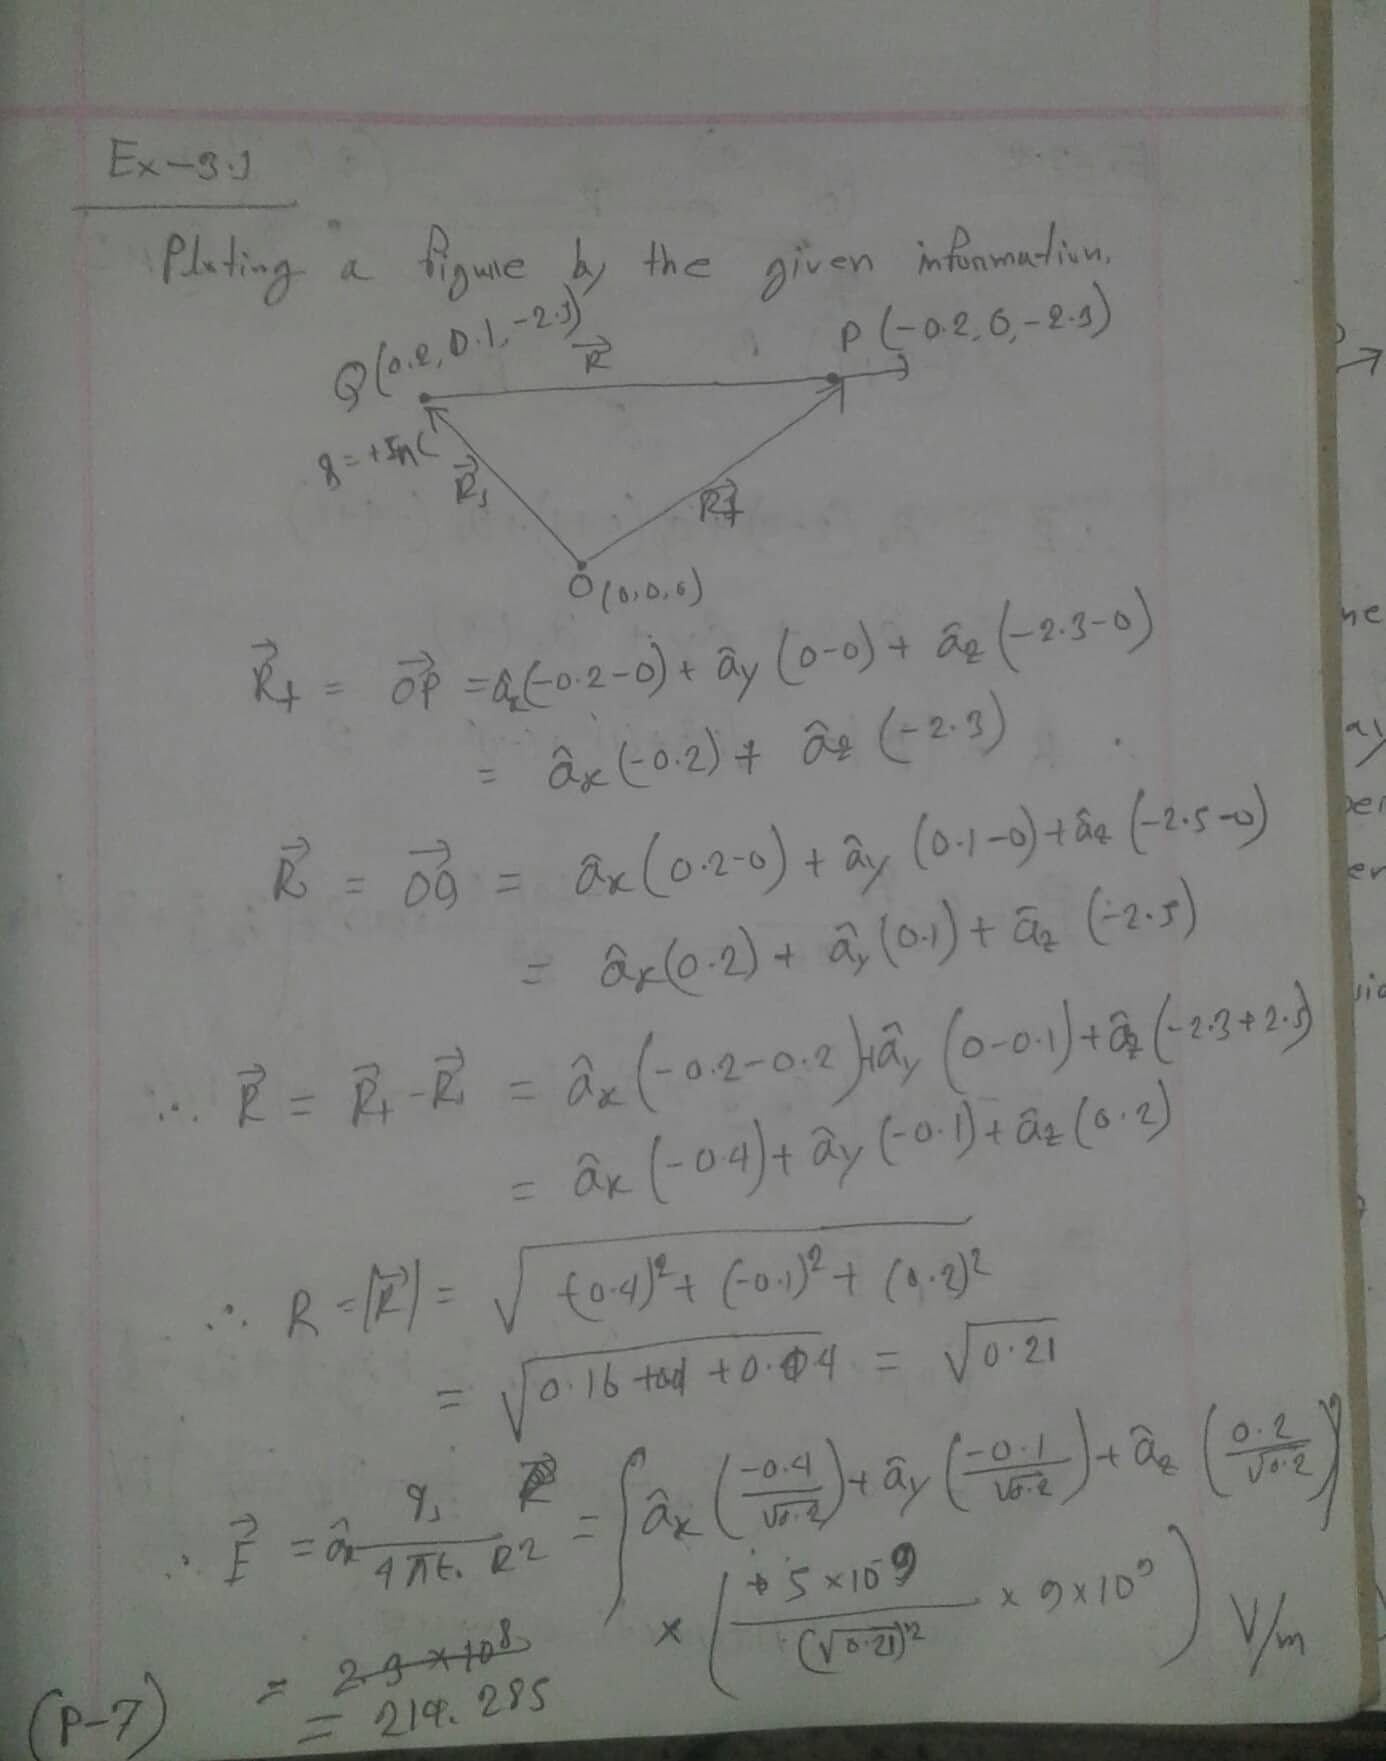 Ex-3.1
Ploting a figure by the given information.
Q(0.2, 0.1, -2.5)
R⃗
P(-0.2, 0, -2.3)
q=+5nC
R⃗₁
R⃗₊
O(0,0,0)
R⃗₊ = OP⃗ = âₓ(-0.2-0) + â_y (0-0) + â_z (-2.3-0)
= âₓ(-0.2) + â_z (-2.3)
R⃗₁ = OQ⃗ = âₓ(0.2-0) + â_y (0.1-0) + â_z (-2.5-0)
= âₓ(0.2) + â_y(0.1) + â_z (-2.5)
∴ R⃗ = R⃗₊ - R⃗₁ = âₓ(-0.2-0.2) + â_y (0-0.1) + â_z (-2.3+2.5)
= âₓ (-0.4) + â_y (-0.1) + â_z (0.2)
∴ R = |R⃗| = √((-0.4)² + (-0.1)² + (0.2)²)
= √(0.16 + 0.01 + 0.04) = √0.21
∴ E⃗ = â_R q₁/(4πε₀R²) = (âₓ(-0.4/√0.2) + â_y(-0.1/√0.2) + â_z(0.2/√0.2))
× (+5×10⁻⁹/(√0.21)² × 9×10⁹) V/m
= 214.285
(P-7)